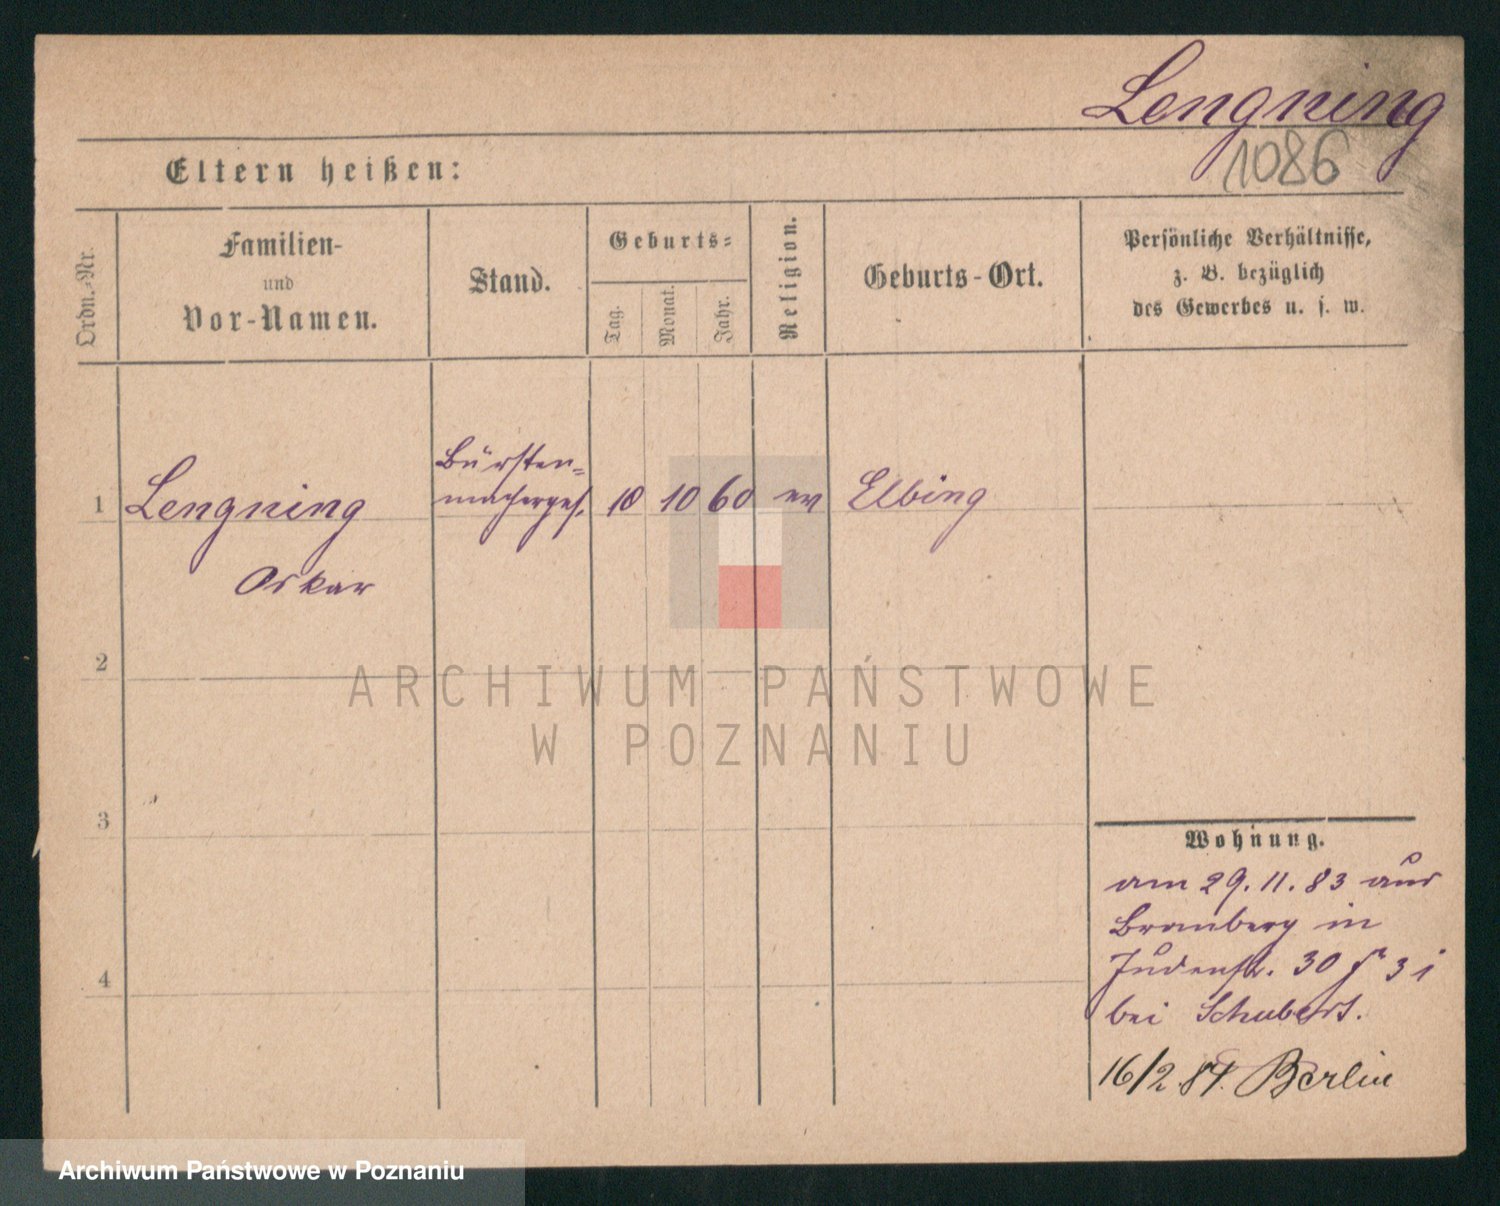 Lengning
1086
Eltern heißen:
Ordn.-Nr.
Familien-
und
Vor-Namen.
Stand.
Geburts-
Tag.
Monat.
Jahr.
Religion.
Geburts-Ort.
Persönliche Verhältnisse,
z. B. bezüglich
des Gewerbes u. s. w.
1
Lengning
Oskar
Bürsten-
macherges.
10 60 ev Elbing
2
3
4
Wohnung.
am 29.11.83 aus
Bromberg in
Judenstr. 30
bei Schubert.
16/2 84. Berlin
ARCHIWUM PAŃSTWOWE
W POZNANIU
Archiwum Państwowe w Poznaniu